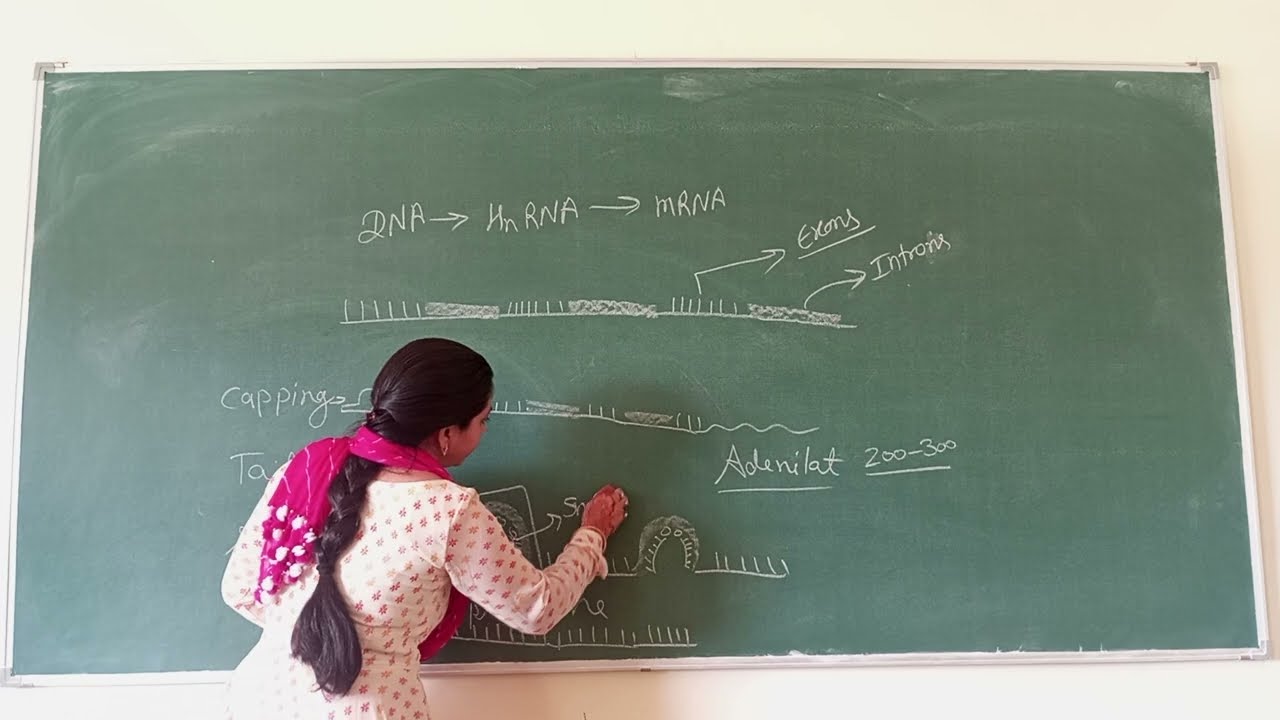 DNA → HnRNA → mRNA
Exons
Introns
Capping
Adenilat 200-300